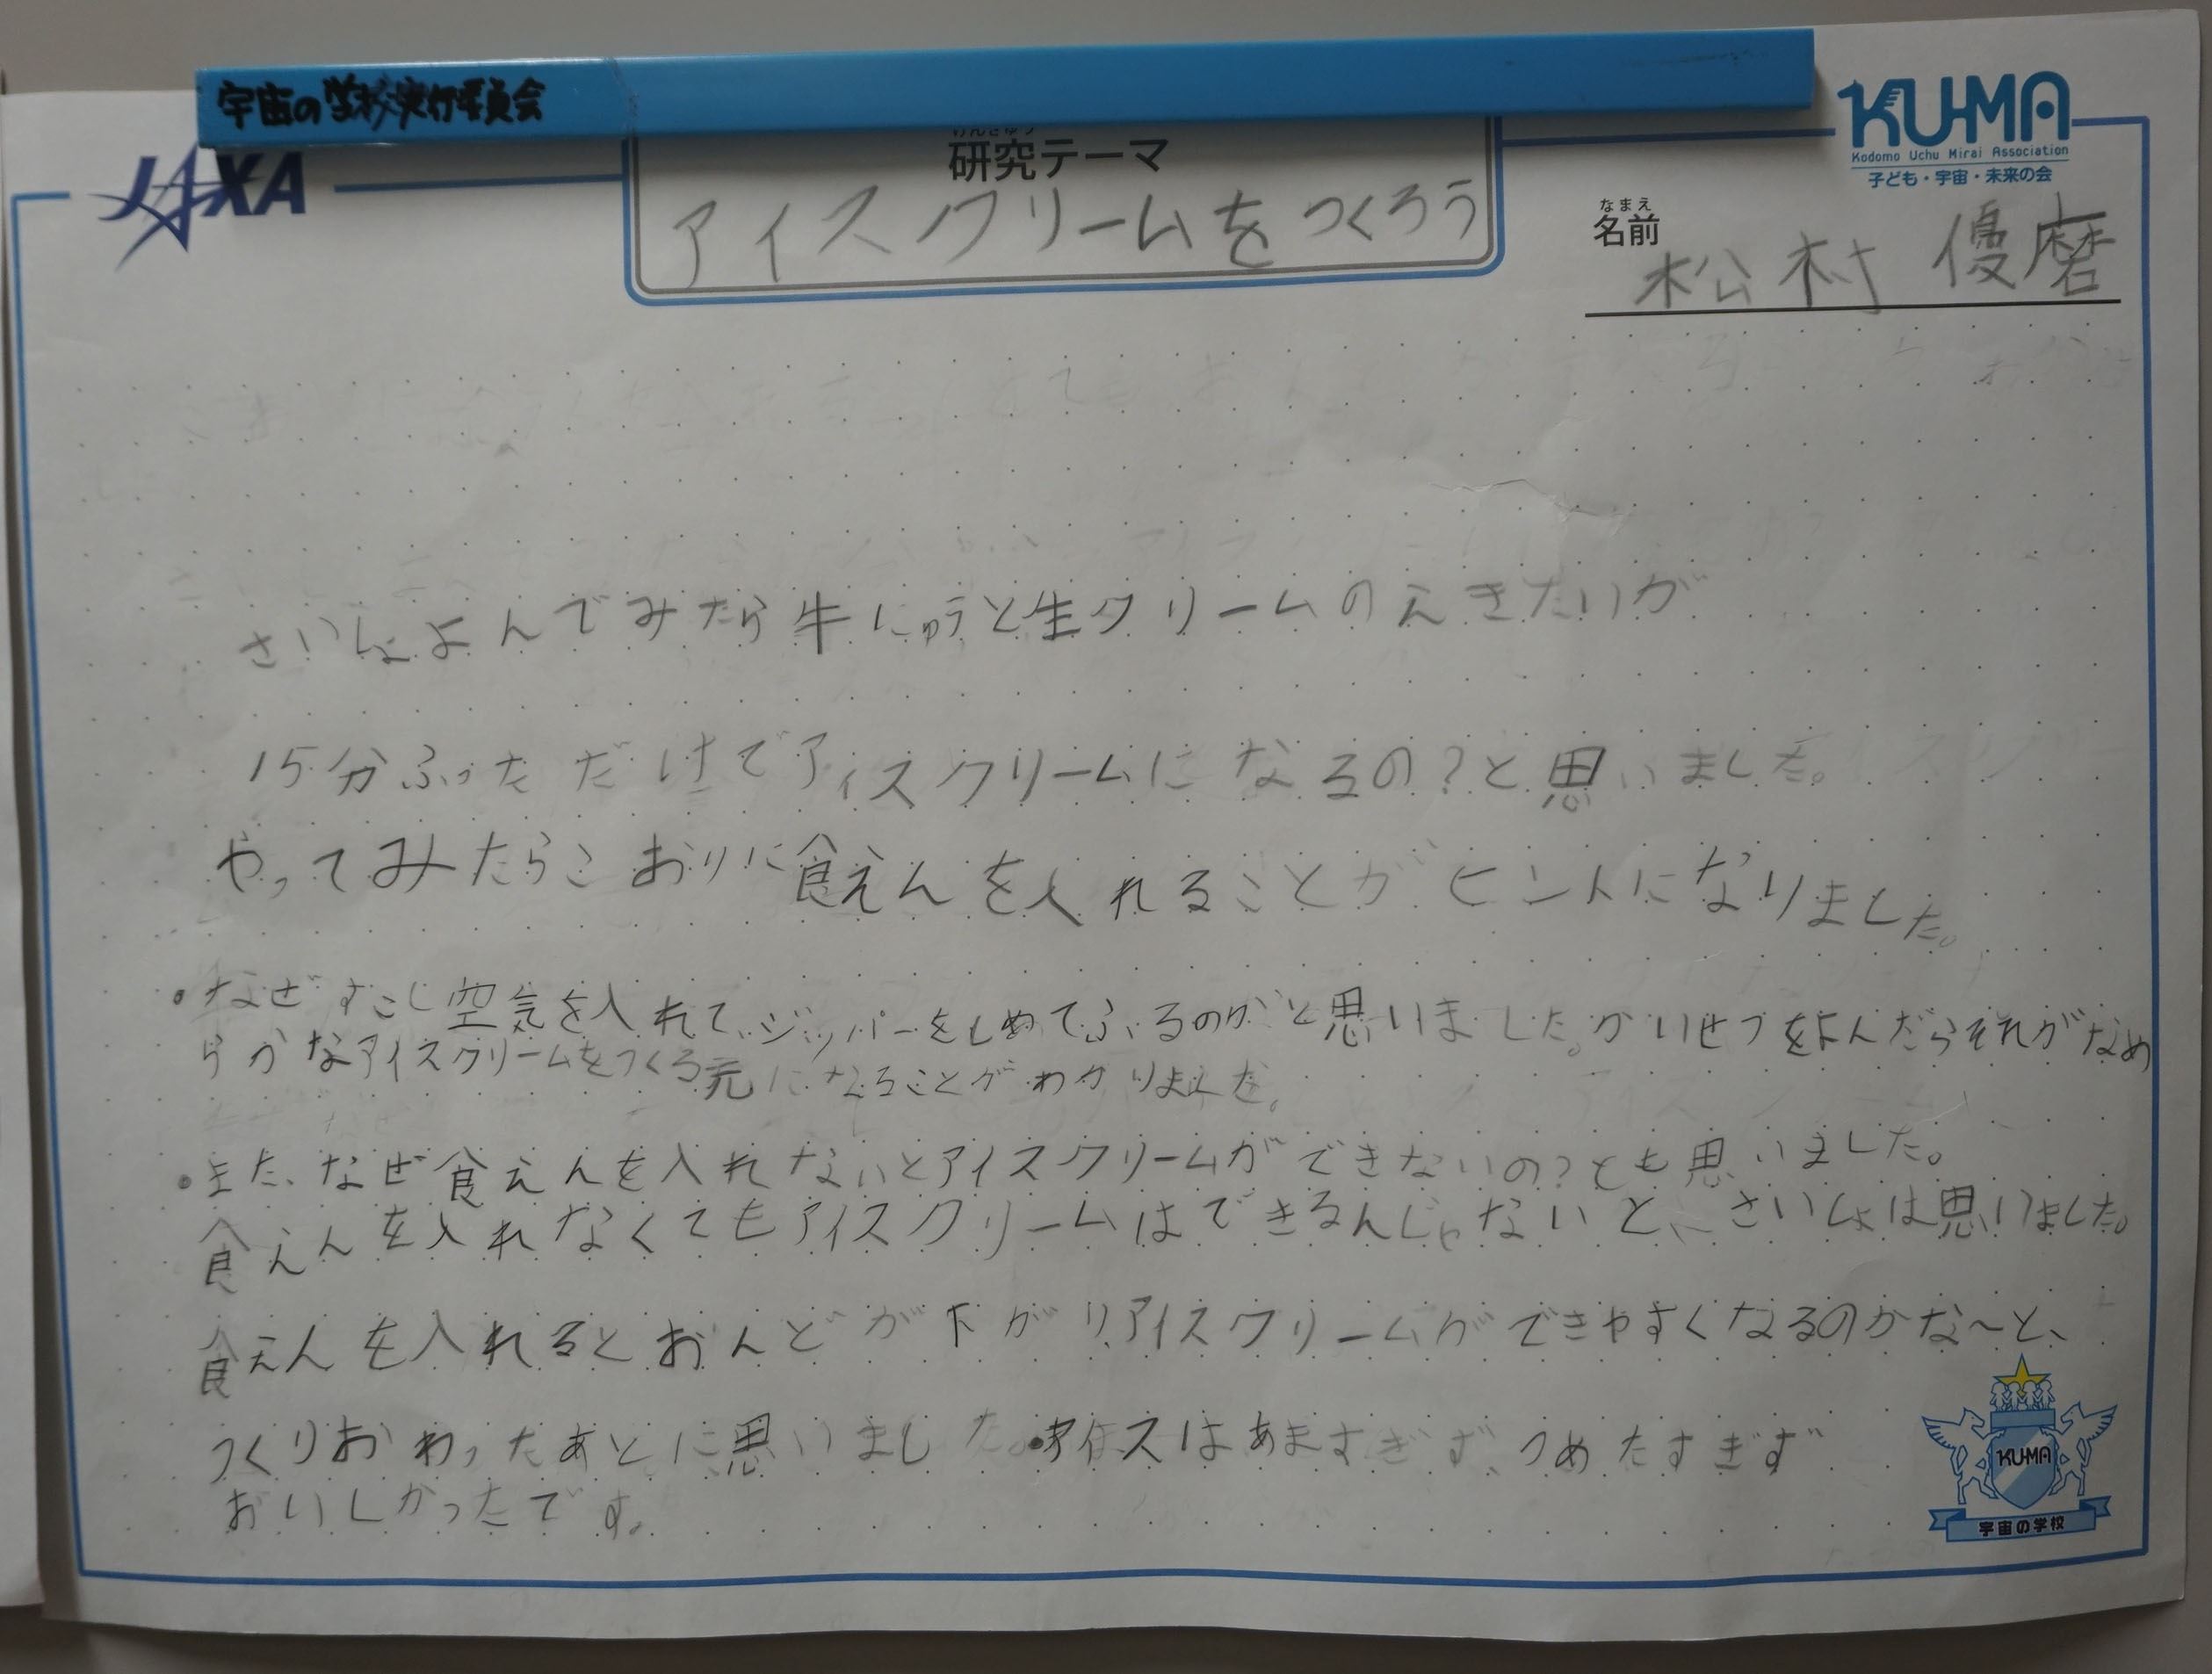 宇宙の学校実行委員会
JAXA
KUMA
Kodomo Uchu Mirai Association
子ども・宇宙・未来の会
けんきゅう
研究テーマ
アイスクリームをつくろう
なまえ
名前
松村 優磨
さいしょよんでみたら牛にゅうと生クリームのえきたいが
15分ふっただけでアイスクリームになるの?と思いました。
やってみたらこおりに食えんを入れることがヒントになりました。
・なぜすこし空気を入れて、ジッパーをしめてふるのかと思いました。かいせつをよんだらそれがなめ
らかなアイスクリームをつくる元になることがわかりました。
・また、なぜ食えんを入れないとアイスクリームができないの?とも思いました。
食えんを入れなくてもアイスクリームはできるんじゃないと、さいしょは思いました。
食えんを入れるとおんどが下がりアイスクリームができやすくなるのかな〜と、
つくりおわったあとに思いました。・アイスはあますぎず、つめたすぎず
おいしかったです。
KUMA
宇宙の学校